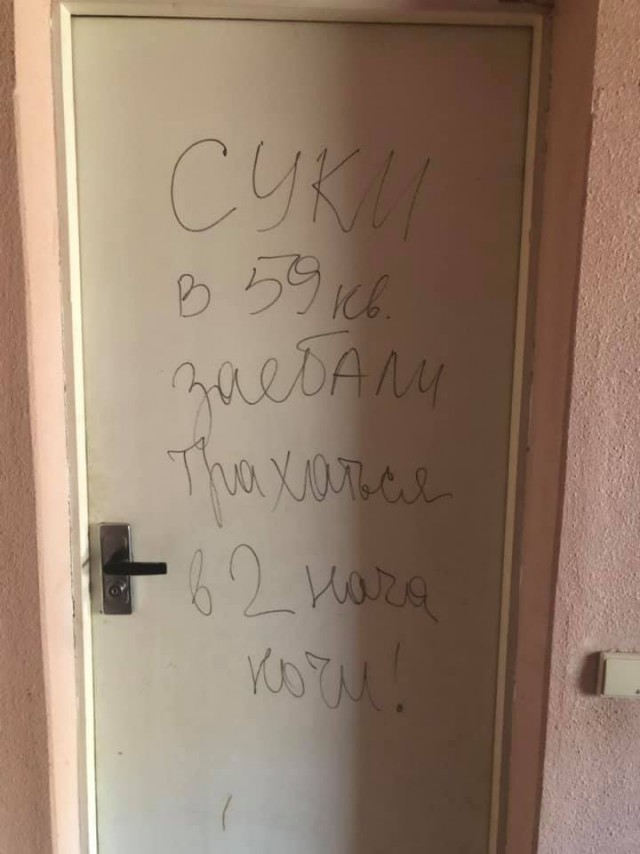 СУКИ
в 59 кв.
заебАли
трахаться
в 2 часа
ночи!